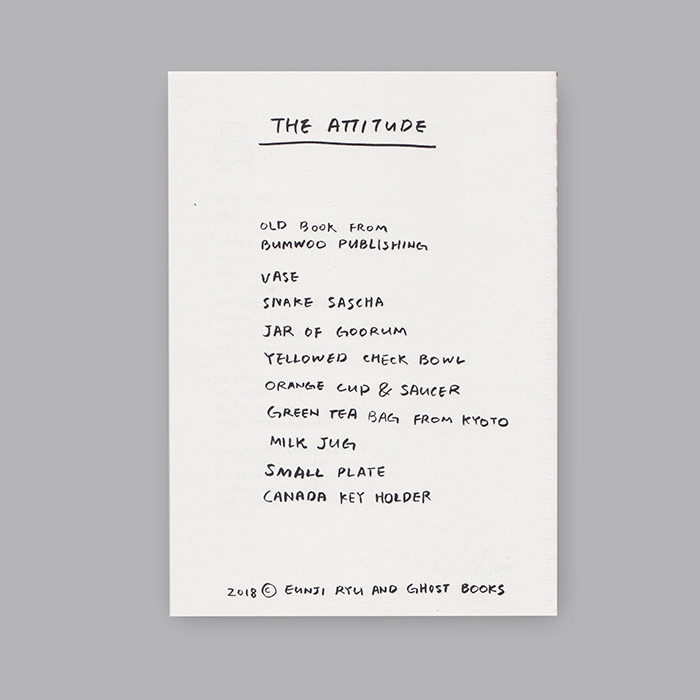 THE ATTITUDE
OLD BOOK FROM
BUMWOO PUBLISHING
VASE
SNAKE SASCHA
JAR OF GOORUM
YELLOWED CHECK BOWL
ORANGE CUP & SAUCER
GREEN TEA BAG FROM KYOTO
MILK JUG
SMALL PLATE
CANADA KEY HOLDER
2018 © EUNJI RYU AND GHOST BOOKS